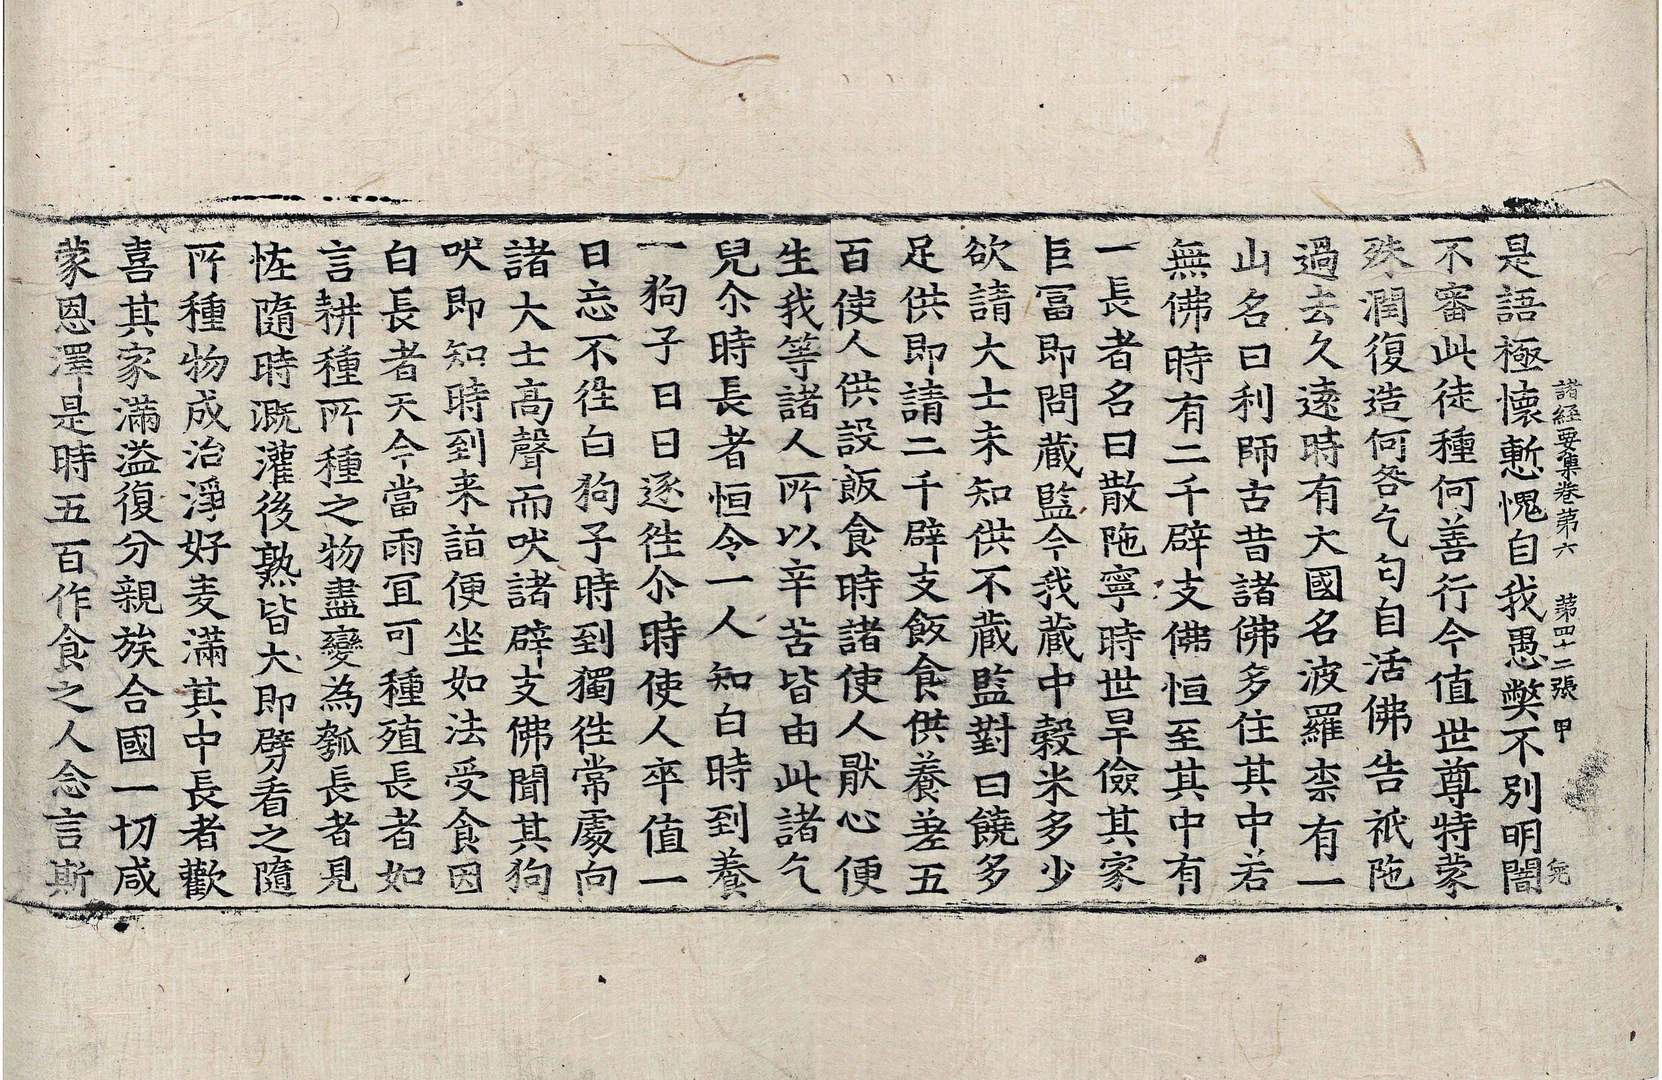 諸經要集卷第六 第四十二張 甲
是語極懷慙愧自我愚弊不別明闇
不審此徒種何善行今值世尊特蒙
殊潤復造何咎乞匃自活佛告祇陁
過去久遠時有大國名波羅柰有一
山名曰利師古昔諸佛多住其中若
無佛時有二千辟支佛恒至其中有
一長者名曰散陁寧時世旱儉其家
巨冨即問藏監今我藏中穀米多少
欲請大士未知供不藏監對曰饒多
足供即請二千辟支飯食供養差五
百使人供設飯食時諸使人猒心便
生我等諸人所以辛苦皆由此諸乞
兒尒時長者恒令一人知白時到養
一狗子日日逐徃尒時使人卒值一
日忘不徃白狗子時到獨徃常處向
諸大士高聲而吠諸辟支佛聞其狗
吠即知時到来詣便坐如法受食因
白長者天今當雨冝可種殖長者如
言耕種所種之物盡變為瓠長者見
恠隨時溉灌後熟皆大即劈看之隨
所種物成治淨好麦滿其中長者歡
喜其家滿溢復分親族合國一切咸
蒙恩澤是時五百作食之人念言斯